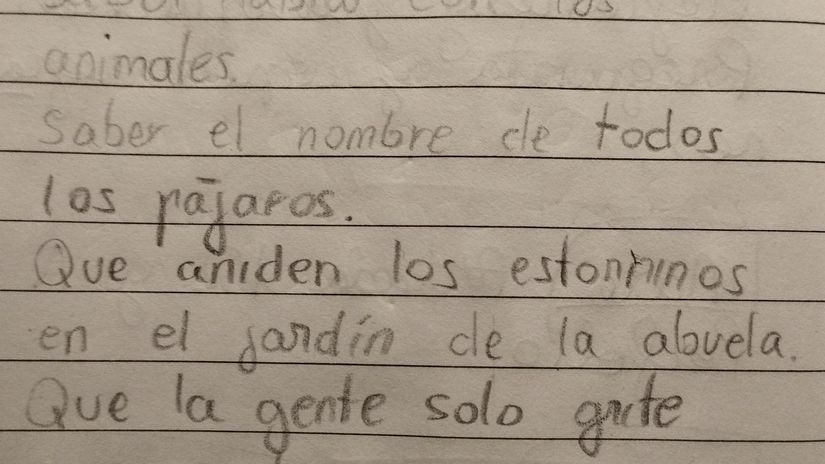 saber hablar con los
animales.
Saber el nombre de todos
los pájaros.
Que aniden los estorninos
en el jardín de la abuela.
Que la gente solo grite